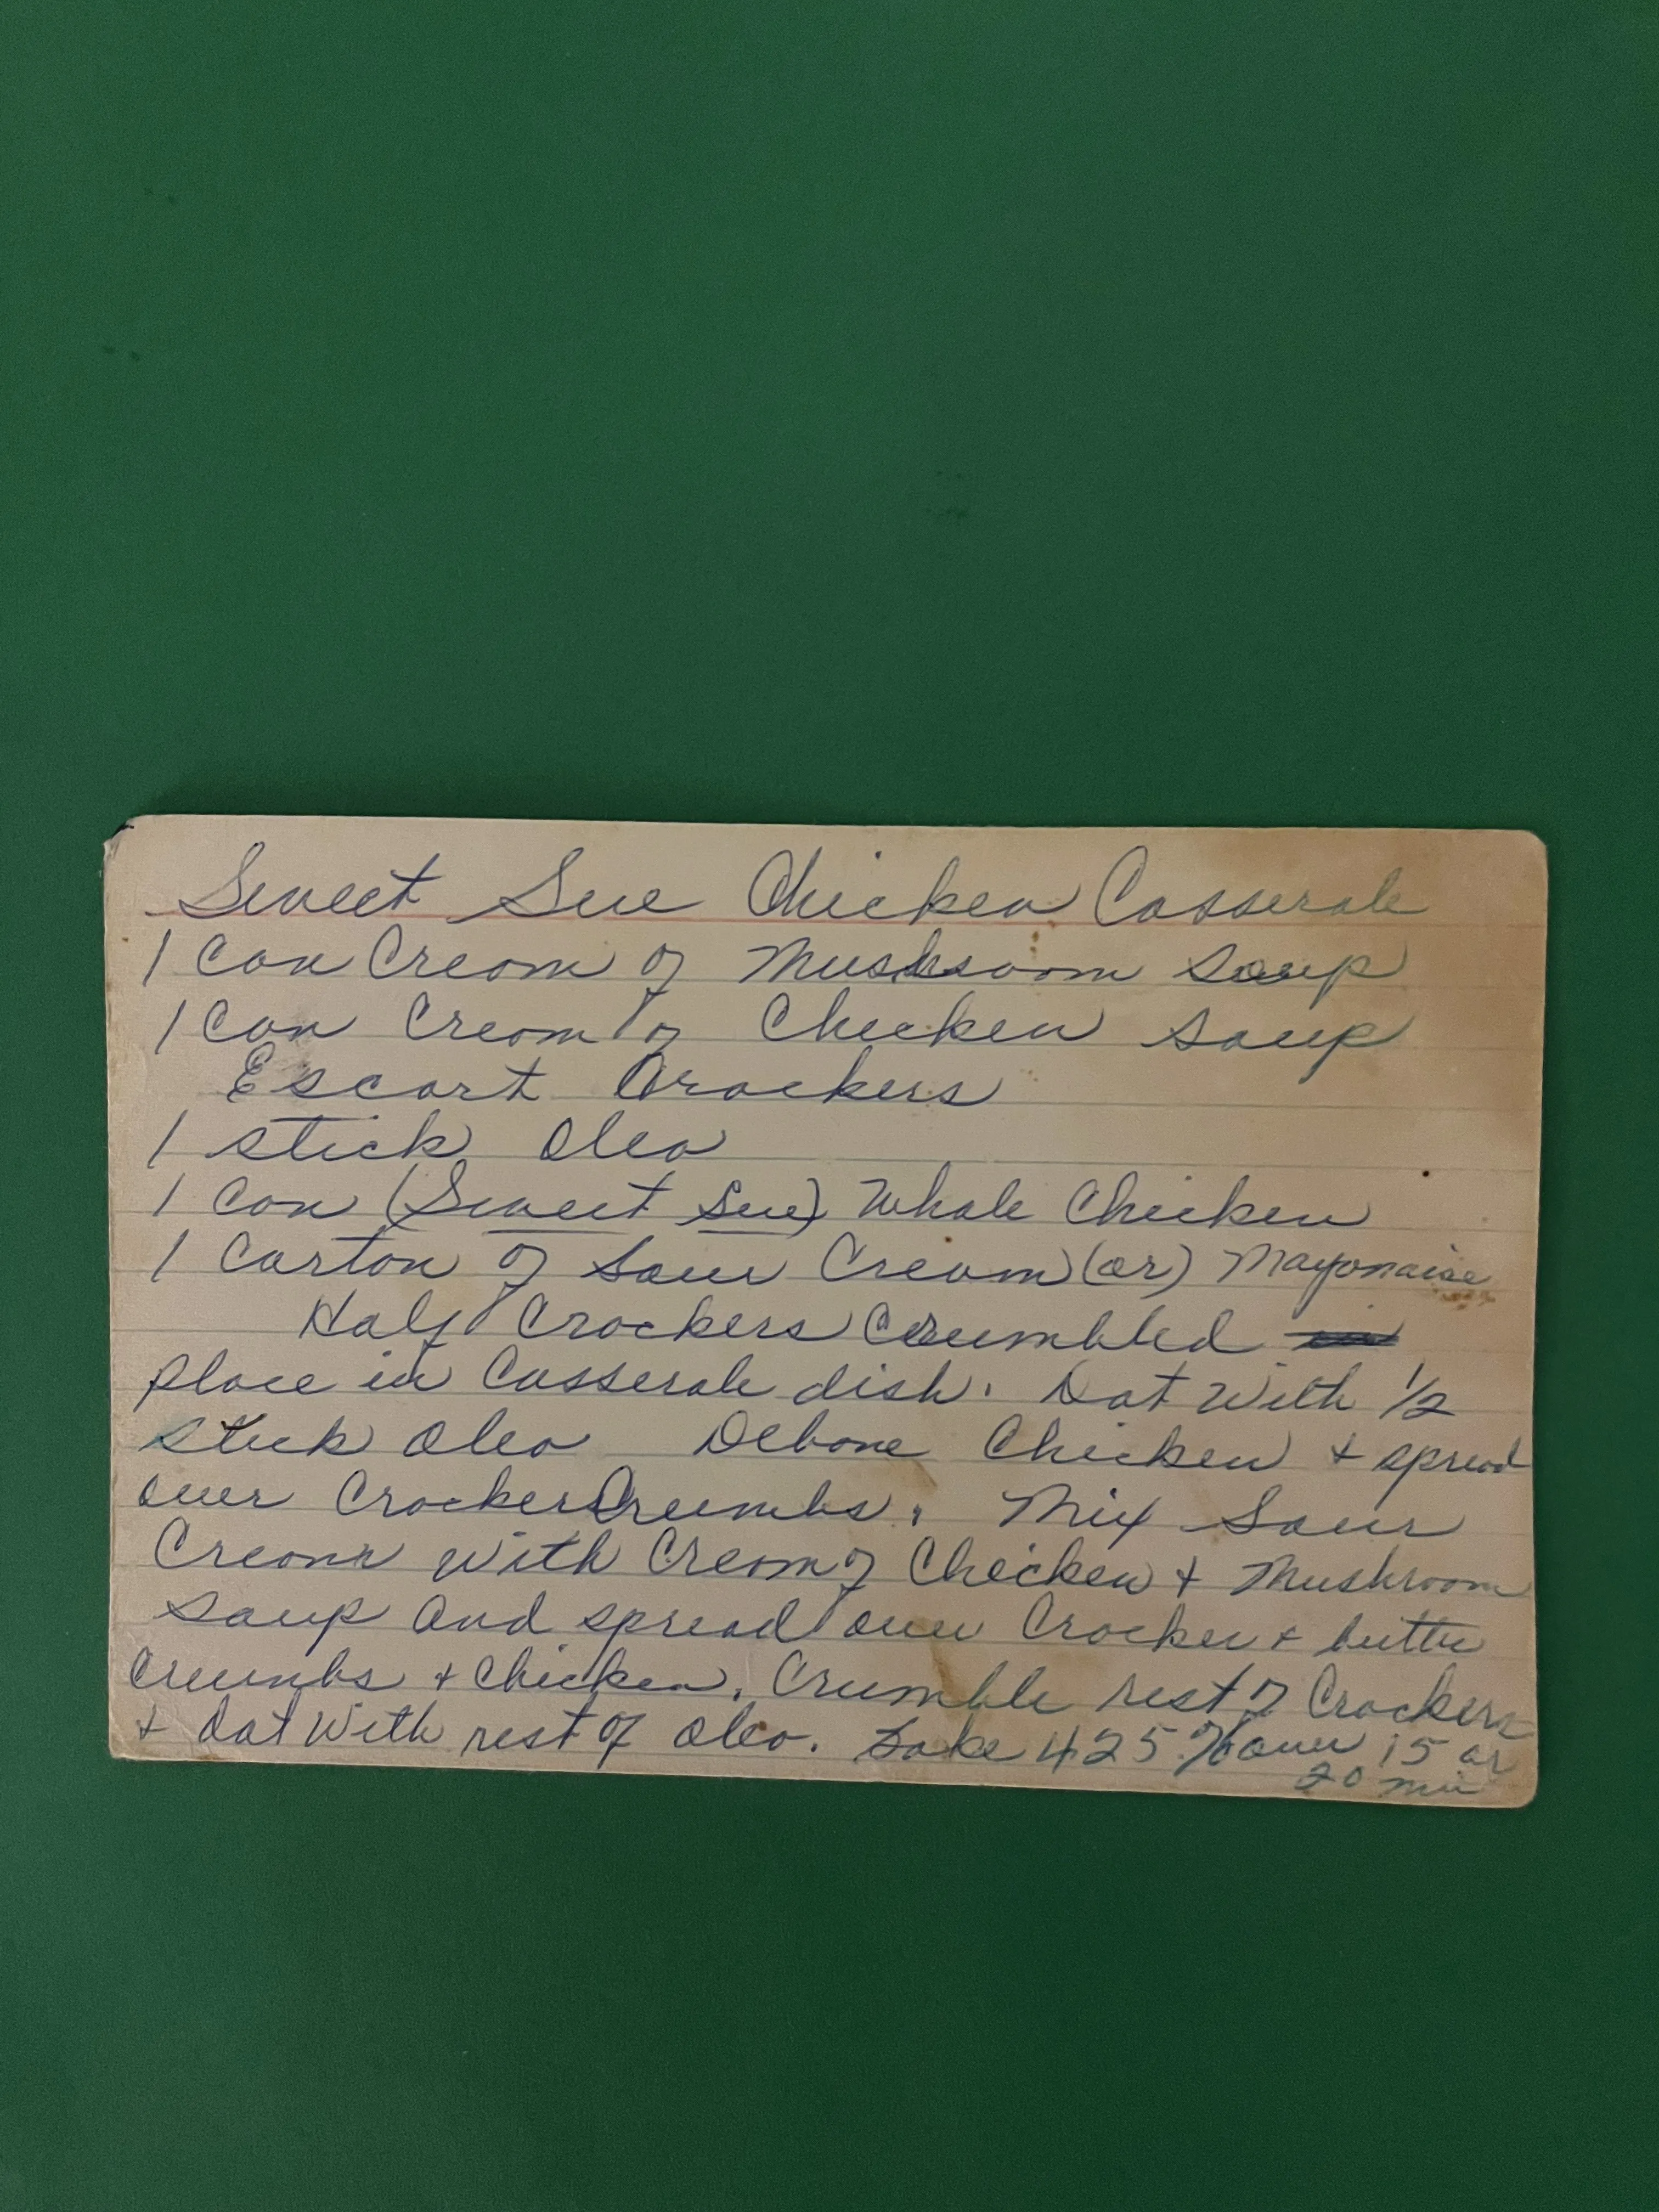 Sweet Sue Chicken Casserole
1 Can Cream of Mushroom Soup
1 Can Cream of Chicken Soup
Escort Crackers
1 stick Oleo
1 Can (Sweet Sue) Whole Chicken
1 Carton of Sour Cream (or) Mayonaise
Half Crackers Crumbled
place in Casserole dish. Dot with 1/2
stick Oleo Debone Chicken + spread
over Cracker Crumbs. Mix Sour
Cream with Cream of Chicken + Mushroom
Soup and spread over Cracker + butter
Crumbs + Chicken. Crumble rest of Crackers
+ dot with rest of Oleo. Bake 425° oven 15 or
20 min